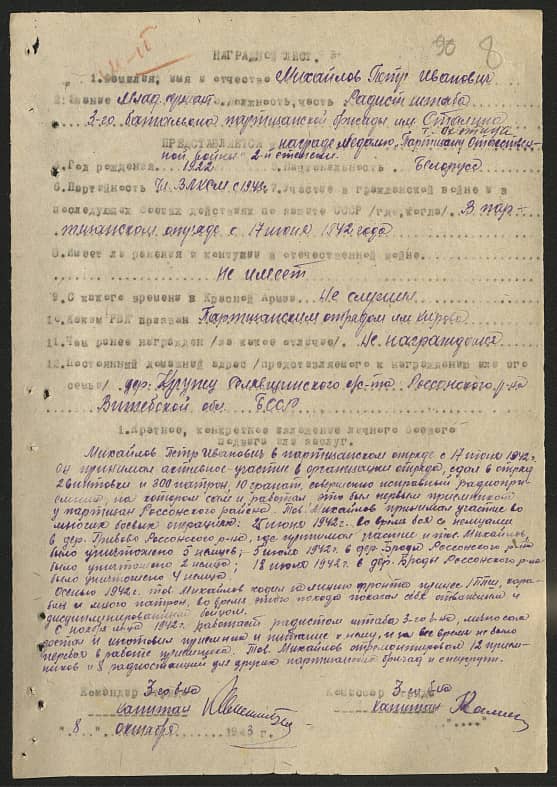 90 8
НАГРАДНОЙ ЛИСТ.
1.Фамилия, имя и отчество Михайлов Петр Иванович
2.Звание млад. сержант должность, часть Радист штаба
3-го батальона партизанской бригады им Сталина
ПРЕДСТАВЛЯЕТСЯ к награде медалью "Партизану Отечествен-
ной войны" 2-й степени
4.Год рождения 1922 5.Национальность Белорус
6.Партийность Чл. ВЛКСМ с 194 7.Участие в гражданской войне и в
последующих боевых действиях по защите СССР /где,когда/. В пар-
тизанском отряде с 17 июня 1942 года
8.Имеет ли ранения и контузии в отечественной войне.
Не имеет
9.С какого времени в Красной Армии Не служил
10.Каким РВК призван Партизанским отрядом им Кирова
11.Чем ранее награжден /за какое отличие/. Не награждался
12.Постоянный домашний адрес /представляемого к награждению или его
семьи/ дер. с/с-та Россонского р-на
Витебской обл БССР
1.Краткое, конкретное изложение личного боевого
подвига или заслуг.
Михайлов Петр Иванович в партизанском отряде с 17 июня 1942г.
он принимал активное участие в организации отряда, сдал в отряд
2 винтовки и 300 патрон, 10 гранат, совершенно исправный радиопри-
емник, на котором сам и работал это был первый приемник
у партизан Россонского района. Тов. Михайлов принимал участие во
многих боевых операциях: июня 1942г. во время боя с немцами
в дер. Россонского р-на, где принимал участие и тов. Михайлов,
было уничтожено 5 немцев; 5 июня 1942г. в дер. Броди Россонского р-на
было уничтожено 2 немца; 18 июня 1942г. в дер. Броди Россонского р-на
было уничтожено 4 немца.
Осенью 1942г. тов Михайлов ходил за линию фронта принес 1 ППШ, кара-
бин и много патрон, во время этого похода показал себя отважным и
дисциплинированным бойцом.
С ноября м-ца 1942г. работает радистом штаба 3-го в-на, лично сам
достал и изготовил приемник и питание к нему, и за все время не было
перебоя в работе приемника. Тов. Михайлов отремонтировал 12 прием-
ников и 8 радиостанций для других партизанских бригад и
Командир 3-го в-на Комиссар 3-го в-на
капитан капитан
"8" октября 1943 г.